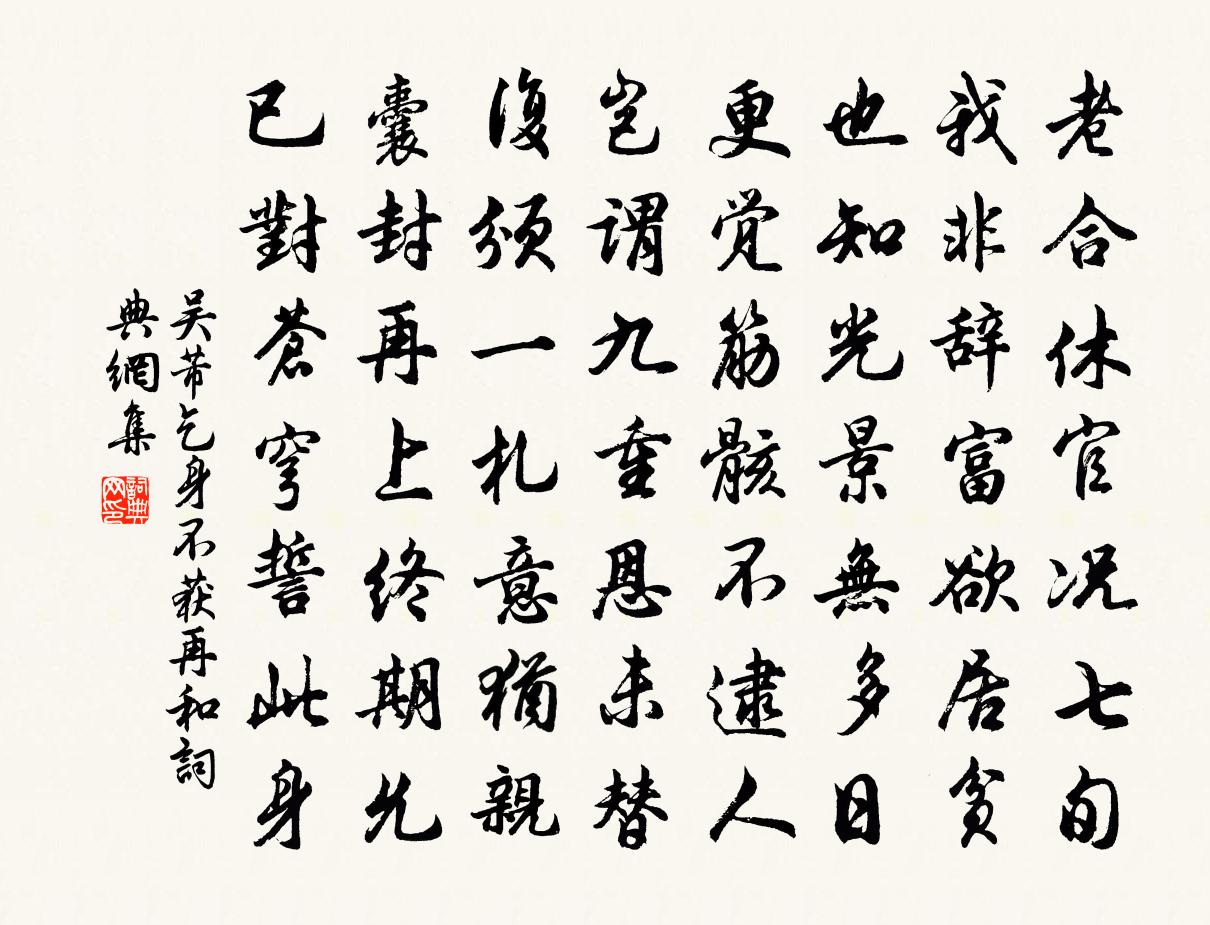 老合休官况七旬
我非辞富欲居贫
也知光景無多日
更觉筋骸不逮人
岂謂九重恩未替
復頒一札意猶親
囊封再上终期允
已對蒼穹誓此身
吴芾乞身不获再和詞
典網集
詞典网印